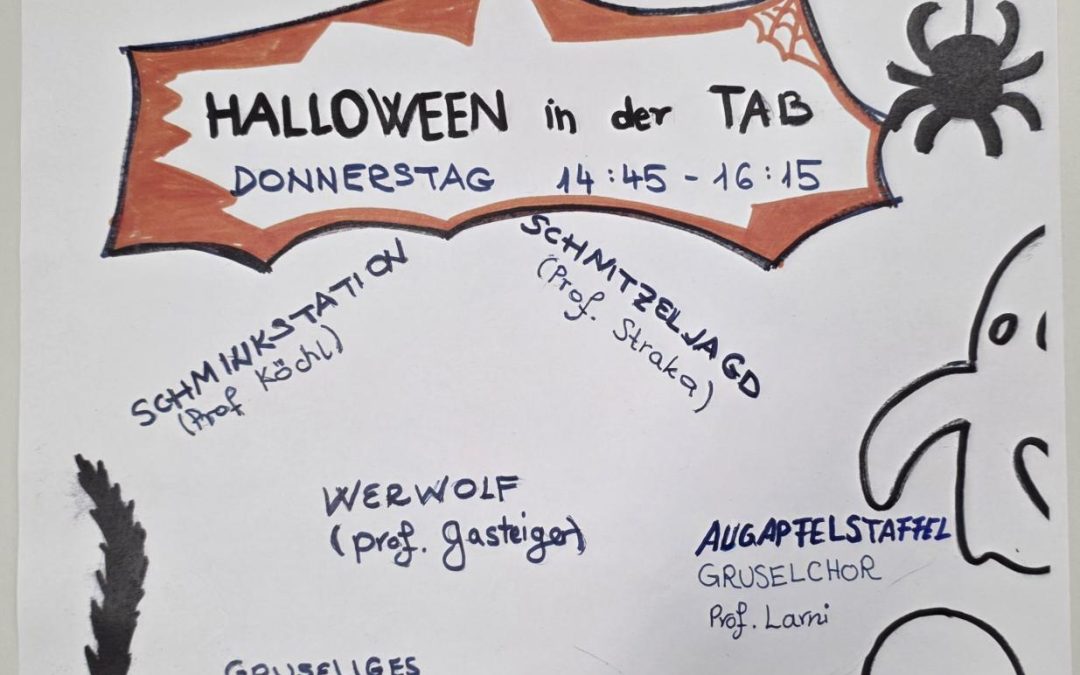 HALLOWEEN in der TAB
DONNERSTAG 14:45 - 16:15
SCHMINKSTATION
(Prof Köchl)
SCHNITZELJAGD
(Prof. Straka)
WERWOLF
(prof. Gasteiger)
AUGAPFELSTAFFEL
GRUSELCHOR
Prof. Larni
GRUSELIGES